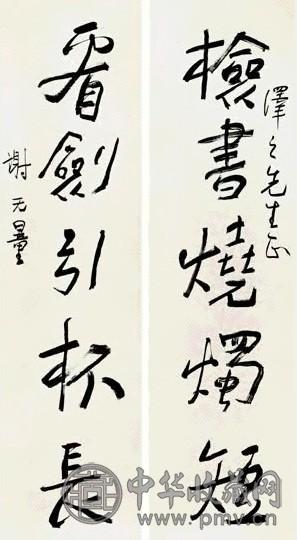 檢書燒燭短
澤之先生正
看劍引杯長
謝无量
中华收藏网
www.pmv.cn